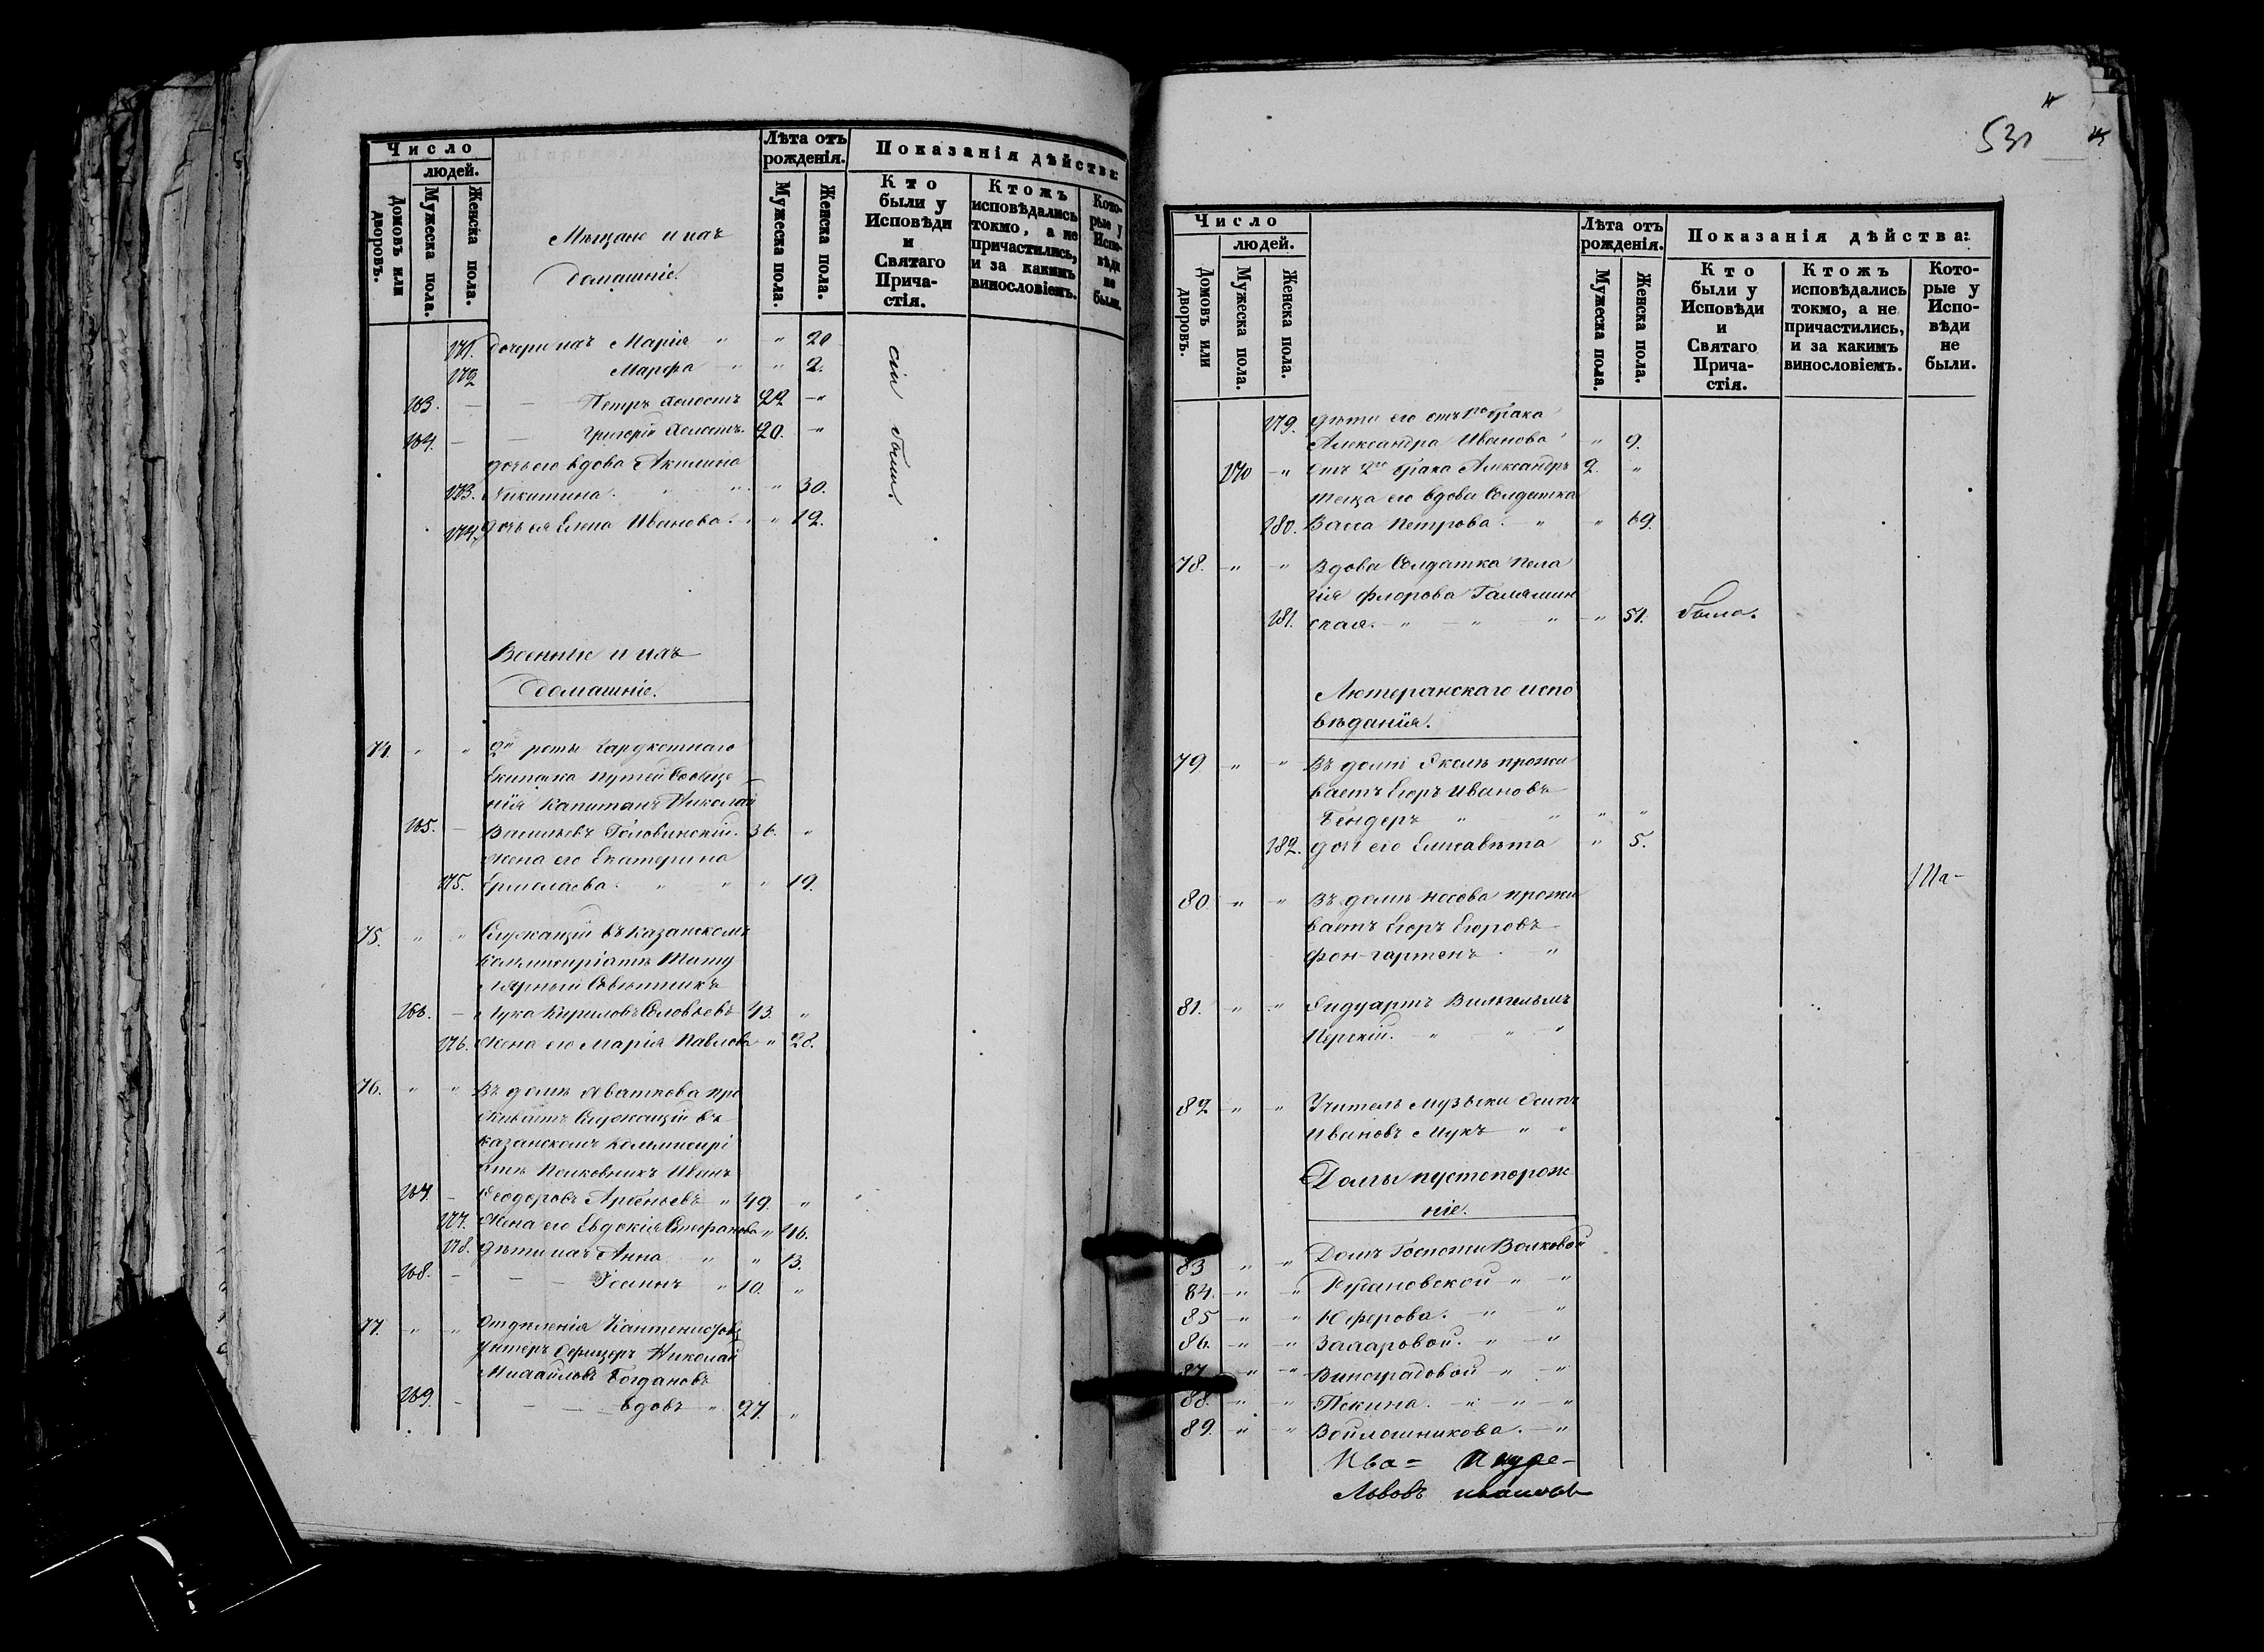 Число
людей.
Домовъ или дворовъ.
Мужеска пола.
Женска пола.
Мѣщане и ихъ
домашніе.
Лѣта отъ рожденія.
Мужеска пола.
Женска пола.
Показанія дѣйства:
Кто были у Исповѣди и Святаго Прича-стія.
Ктожъ исповѣдались токмо, а не причастились, и за какимъ винословіемъ.
Кото-рые у Испо-вѣди не были.
171. дочери ихъ Марія " " 20
172 Марфа " " 2.
163. — — Петръ холостъ 22 — "
164. — — Григорій холостъ. 20. — "
дочь его вдова Акилина
173. Никитина. " " " 30.
174. дочь ея Елена Иванова. " 12.
сіи были.
Военные и ихъ
домашніе.
74. " " 2й роты
Екипажа путей Сообще-
нія Капитанъ Николай
165. — Васильевъ Головинскій. 36. "
жена его Екатерина
175. Ермолаева. " " " 19.
75. " " Служащій въ Казанскомъ
Коммисиріатѣ Титу
лярный Совѣтникъ
166. — Лука Кириловъ Соловьевъ 43. "
176. жена его Марія Павлова " 28.
76. " " Въ домѣ Аваткова про
живаетъ Служащій въ
Казанскомъ Коммисирі
атѣ Полковникъ Иванъ
167. — Ѳеодоровъ Арсеньевъ " 49. "
177. жена его Евдокія Стефанова "
178. дѣти ихъ Анна " " 13.
168. — — — Іоаннъ " 10. "
77. " " Отдѣленія Кантонистовъ
Унтеръ Офицеръ Николай
Михайловъ Богдановъ
169. — — — вдовъ " 27. "
531
Число
людей.
Домовъ или дворовъ.
Мужеска пола.
Женска пола.
Лѣта отъ рожденія.
Мужеска пола.
Женска пола.
Показанія дѣйства:
Кто были у Исповѣди и Святаго Прича-стія.
Ктожъ исповѣдались токмо, а не причастились, и за какимъ винословіемъ.
Кото-рые у Испо-вѣди не были.
179. дѣти его отъ 1го брака
Александра Иванова " 9.
170 — " отъ 2го брака Александръ 2. "
теща его вдова Солдатка
180. Васса Петрова. " " 69.
78. — " " Вдова Солдатка Пела
гія Флорова
181. ская. " " " " 51. была.
Лютеранскаго испо
вѣданія.
79 " " Въ домѣ прожи
ваетъ Егоръ Ивановъ
Бендеръ " " " "
182. дочь его Елисавѣта " 5.
80. " " Въ домѣ Носова прожи
ваетъ Егоръ Егоровъ
фон-гартенъ "
81. " " Эидуартъ Вильгельмъ
" " "
82 " " Учитель музыки Осипъ
Ивановъ Мукъ " "
Домы пустопорож
ніе.
83 " " Домъ Госпожи Волковой
84. " " " "
85 " " Юферова. " "
86. " " " "
87. " " Виноградовой " "
88. " " " " "
89. " " Войлошникова. "
Ива=
Львовъ